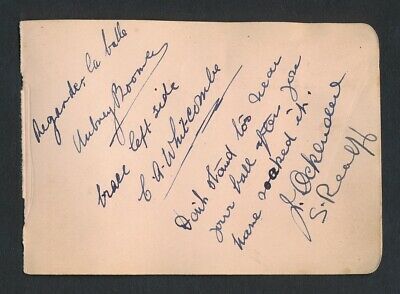 Regardez la balle
Aubrey Boomer
brace left side
C. A. Whitcombe
Don't stand too near
your ball after you
have socked it.
J. Ockenden
S. Realff